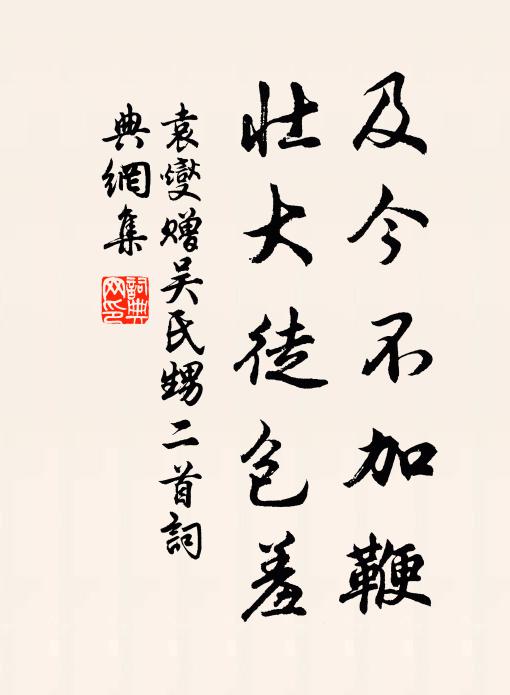 及今不加鞭
壮大徒包羞
袁燮赠吴氏甥二首詞
典網集
詞典网印